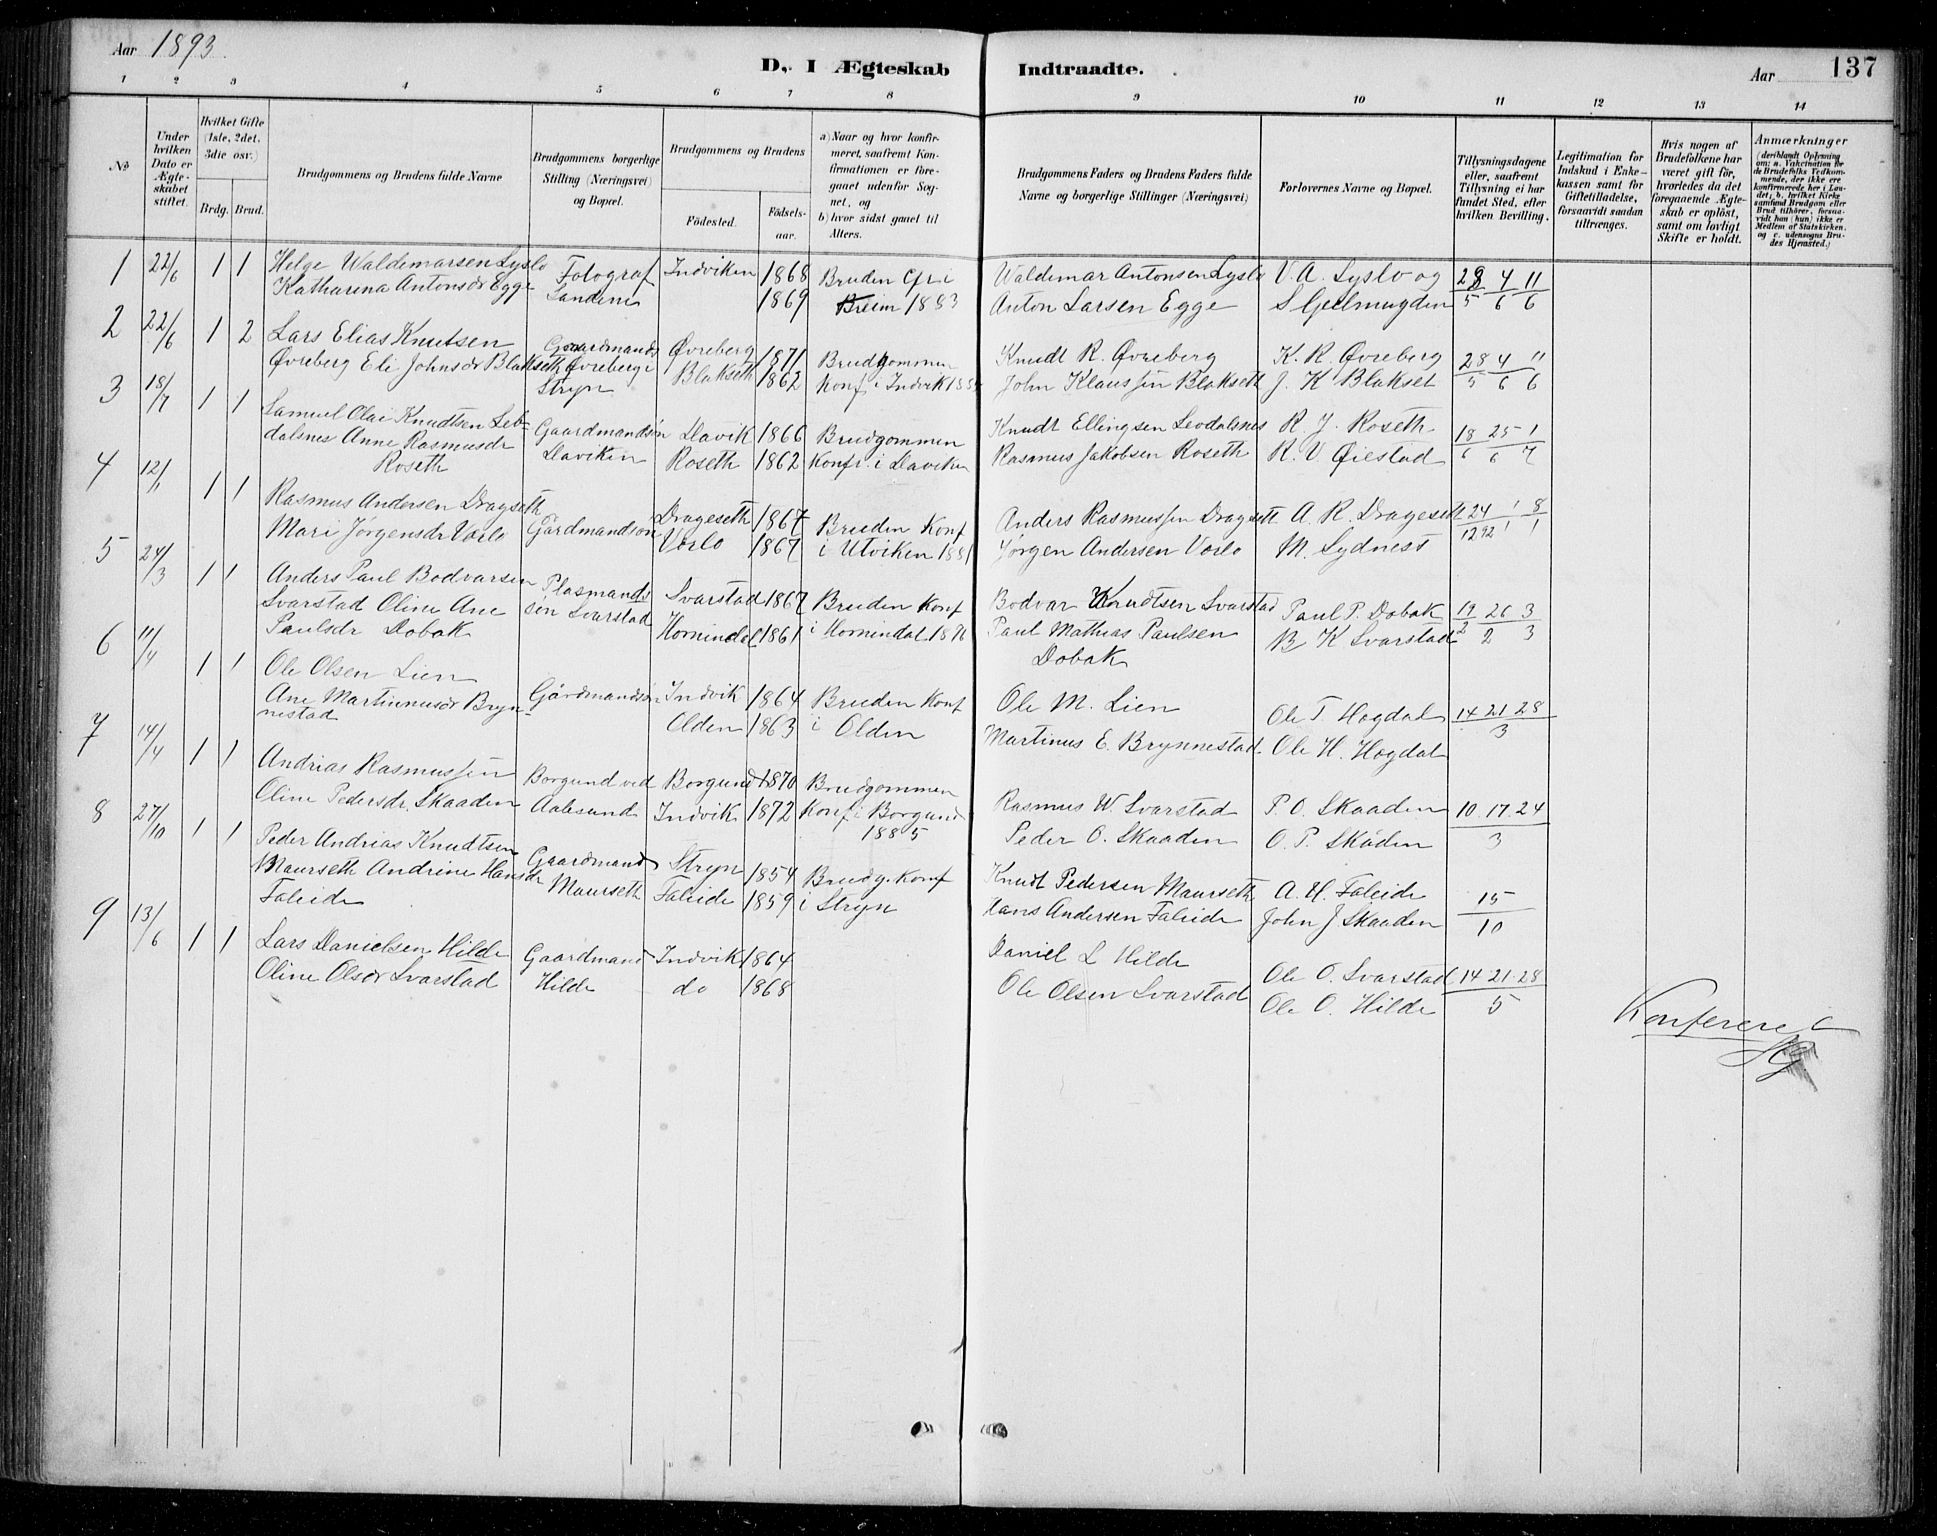 Aar 1893.
D. I Ægteskab Indtraadte.
Aar 137
1 2 3 4 5 6 7 8 9 10 11 12 13 14
No
Under hvilken Dato er Ægteskabet stiftet.
Hvilket Gifte (1ste, 2det, 3die osv.)
Brdg. Brud.
Brudgommens og Brudens fulde Navne
Brudgommens borgerlige Stilling (Næringsvei) og Bopæl.
Brudgommens og Brudens
Fødested. Fødselsaar.
a) Naar og hvor konfirmeret, saafremt Konfirmationen er foregaaet udenfor Sognet, og
b) hvor sidst gaaet til Alters.
Brudgommens Faders og Brudens Faders fulde Navne og borgerlige Stillinger (Næringsvei)
Forlovernes Navne og Bopæl.
Tillysningsdagene eller, saafremt Tillysning ei har fundet Sted, efter hvilken Bevilling.
Legitimation for Indskud i Enkekassen samt for Giftetilladelse, forsaavidt saadan tiltrænges.
Hvis nogen af Brudefolkene har været gift før, hvorledes da det foregaaende Ægteskab er opløst, samt om lovligt Skifte er holdt.
Anmærkninger (deriblandt Oplysning om: a. Vakcination for de Brudefolks Vedkommende, der ikke ere konfirmerede her i Landet; b. hvilket Kirkesamfund Brudgom eller Brud tilhører, forsaavidt han (hun) ikke er Medlem af Statskirken, og c. udensogns Brudes Hjemsted.)
1 22/6 1 1 Helge Waldemarsen Lyslo Fotograf Indviken 1868 Bruden Cfr i Waldemar Antonsen Lyslo V. A. Lyslo og 28 4 11
Katharina Antonsdr Egge Sandene 1869 Breim 1883 Anton Larsen Egge S Gjelmugden 5 6 6
2 22/6 1 2 Lars Elias Knutsen Gaardmands Øvreberg 1871 Brudgommen Knudt R. Øvreberg K. R. Øvreberg 28 4 11
Øvreberg Eli Johnsdr Blakseth Øvreberg i Stryn Blakseth 1862 Konf. i Indvik John Klaussen Blakseth J. K Blakset 5 6 6
3 18/7 1 1 Samuel Olai Knudtsen Leb- Gaardmandsøn Davik 1866 Brudgommen Knudt Ellingsen Levdalsnes R. J. Roseth 18 25 1
dalsnes Anne Rasmusdr Daviken Roseth 1862 Konf. i Daviken Rasmus Jakobsen Roseth R. V. Øiestad 6 6 7
Roseth
4 12/1 1 1 Rasmus Andersen Dragseth Gårdmandsøn Drageseth 1867 Bruden Konf Anders Rasmussen Dragsett A. R. Dragesett 24 1 8
Mari Jørgensdr Voslo Voslo 1867 i Utviken 1881 Jørgen Andersen Voslo M. Sydness 12 92 1 1
5 24/3 1 1 Anders Paul Bodvarsen Plasmands Svarstad 1867 Bruden Konf Bodvar Knudtsen Svarstad Paul P. Dobak 19 26 3
Svarstad Oline Ane søn Svarstad Hornindal 1861 i Hornindal 1876 Paul Mathias Paulsen B. K Svarstad 2 2 3
Paulsdr Dobak Dobak
6 11/4 1 1 Ole Olsen Lien Gårdmandsøn Indvik 1864 Bruden Konf Ole M. Lien Ole T. Hogdal 14 21 28
Ane Martinusdr Bryn- Olden 1863 i Olden Martinus E. Brynnestad Ole H. Hogdal 3
nestad
7 14/4 1 1 Andrias Rasmussen Borgund ved Borgund 1870 Brudgommen Rasmus W. Svarstad P. O. Skaaden 10. 17. 24
Oline Pedersdr. Skaaden Aalesund Indvik 1872 Konf i Borgund Peder O. Skaaden O. P. Skåden 3
1885
8 27/10 1 1 Peder Andrias Knudtsen Gaardmand Stryn 1854 Brudg. Konf Knudt Pedersen Maurseth A. H. Faleide 15
Maurseth Andrine Hansdr Maurseth Faleide 1859 i Stryn Hans Andersen Faleide John J Skaaden 10
Faleide
9 13/6 1 1 Lars Danielsen Hilde Gaardmand Indvik 1864 Daniel L Hilde Ole O. Svarstad 14 21 28
Oline Olsdr Svarstad Hilde do 1868 Ole Olsen Svarstad Ole O. Hilde 5
Konfereret